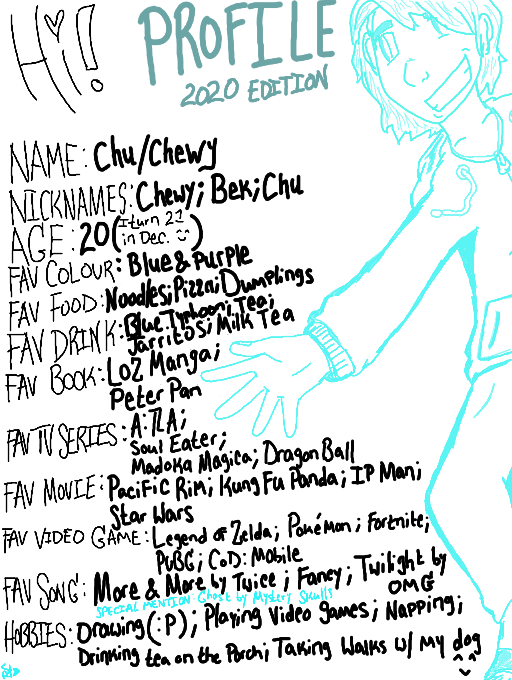 Hi!
PROFILE
2020 EDITION
NAME: Chu/Chewy
NICKNAMES: Chewy; Bek; Chu
AGE: 20 (I turn 21
in Dec. :)
FAV COLOUR: Blue & Purple
FAV FOOD: Noodles; Pizza; Dumplings
FAV DRINK: Blue Typhoon; Tea;
Jarritos; Milk Tea
FAV BOOK: LoZ Manga;
Peter Pan
FAV TV SERIES: A:TLA;
Soul Eater;
Madoka Magica; Dragon Ball
FAV MOVIE: Pacific Rim; Kung Fu Panda; IP Man;
Star Wars
FAV VIDEO GAME: Legend of Zelda; Pokémon; Fortnite;
PUBG; CoD: Mobile
FAV SONG: More & More by Twice; Fancy; Twilight by
OMG
SPECIAL MENTION: Ghost by Mystery Skulls
HOBBIES: Drawing (:P); Playing Video games; Napping;
Drinking tea on the Porch; Taking Walks w/ my dog
^^